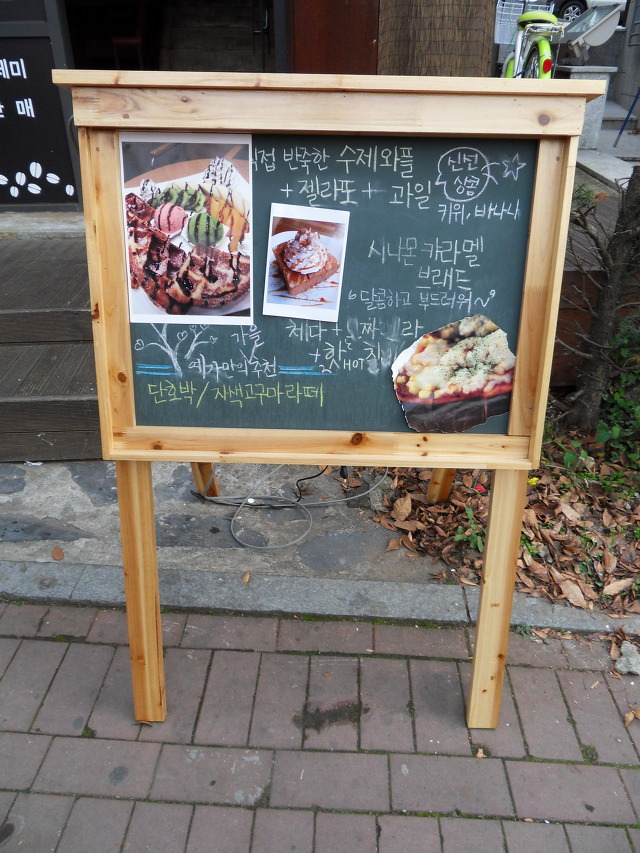 레미
판매
직접 반죽한 수제와플
+ 젤라또 + 과일
신선
상큼
키위, 바나나
시나몬 카라멜
브레드
달콤하고 부드러워~
가을
체다 +
+ 핫
HOT
추천
단호박/자색고구마라떼